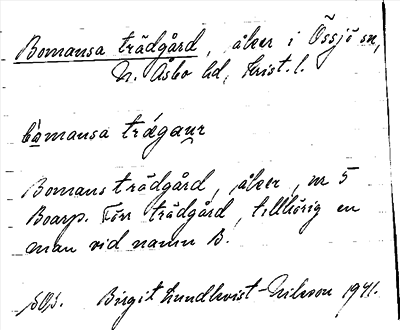 Bomansa trädgård, åker i Össjö sn,
N. Åsbo hd, Krist. l.
bo̊mansa trǽgaụr
Bomans trädgård, åker, nr 5
Boarp. Förr trädgård, tillhörig en
man vid namn B.
Birgit Lundkvist-Nilsson 1941.